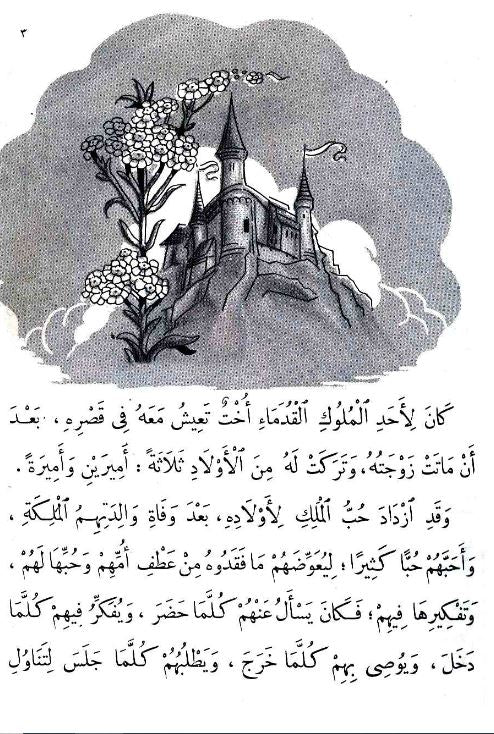 ٣
كَانَ لِأَحَدِ ٱلْمُلُوكِ ٱلْقُدَمَاءِ أُخْتٌ تَعِيشُ مَعَهُ فِى قَصْرِهِ ، بَعْدَ
أَنْ مَاتَتْ زَوْجَتُهُ، وَتَرَكَتْ لَهُ مِنَ ٱلْأَوْلَادِ ثَلَاثَةً : أَمِيرَيْنِ وَأَمِيرَةً .
وَقَدِ ٱزْدَادَ حُبُّ ٱلْمَلِكِ لِأَوْلَادِهِ، بَعْدَ وَفَاةِ وَالِدَتِهِمُ ٱلْمَلِكَةِ ،
وَأَحَبَّهُمْ حُبًّا كَثِيرًا ؛ لِيُعَوِّضَهُمْ مَا فَقَدُوهُ مِنْ عَطْفِ أُمِّهِمْ وَحُبِّهَا لَهُمْ ،
وَتَفْكِيرِهَا فِيهِمْ ؛ فَكَانَ يَسْأَلُ عَنْهُمْ كُلَّمَا حَضَرَ ، وَيُفَكِّرُ فِيهِمْ كُلَّمَا
دَخَلَ ، وَيُوصِى بِهِمْ كُلَّمَا خَرَجَ ، وَيَطْلُبُهُمْ كُلَّمَا جَلَسَ لِتَنَاوُلِ